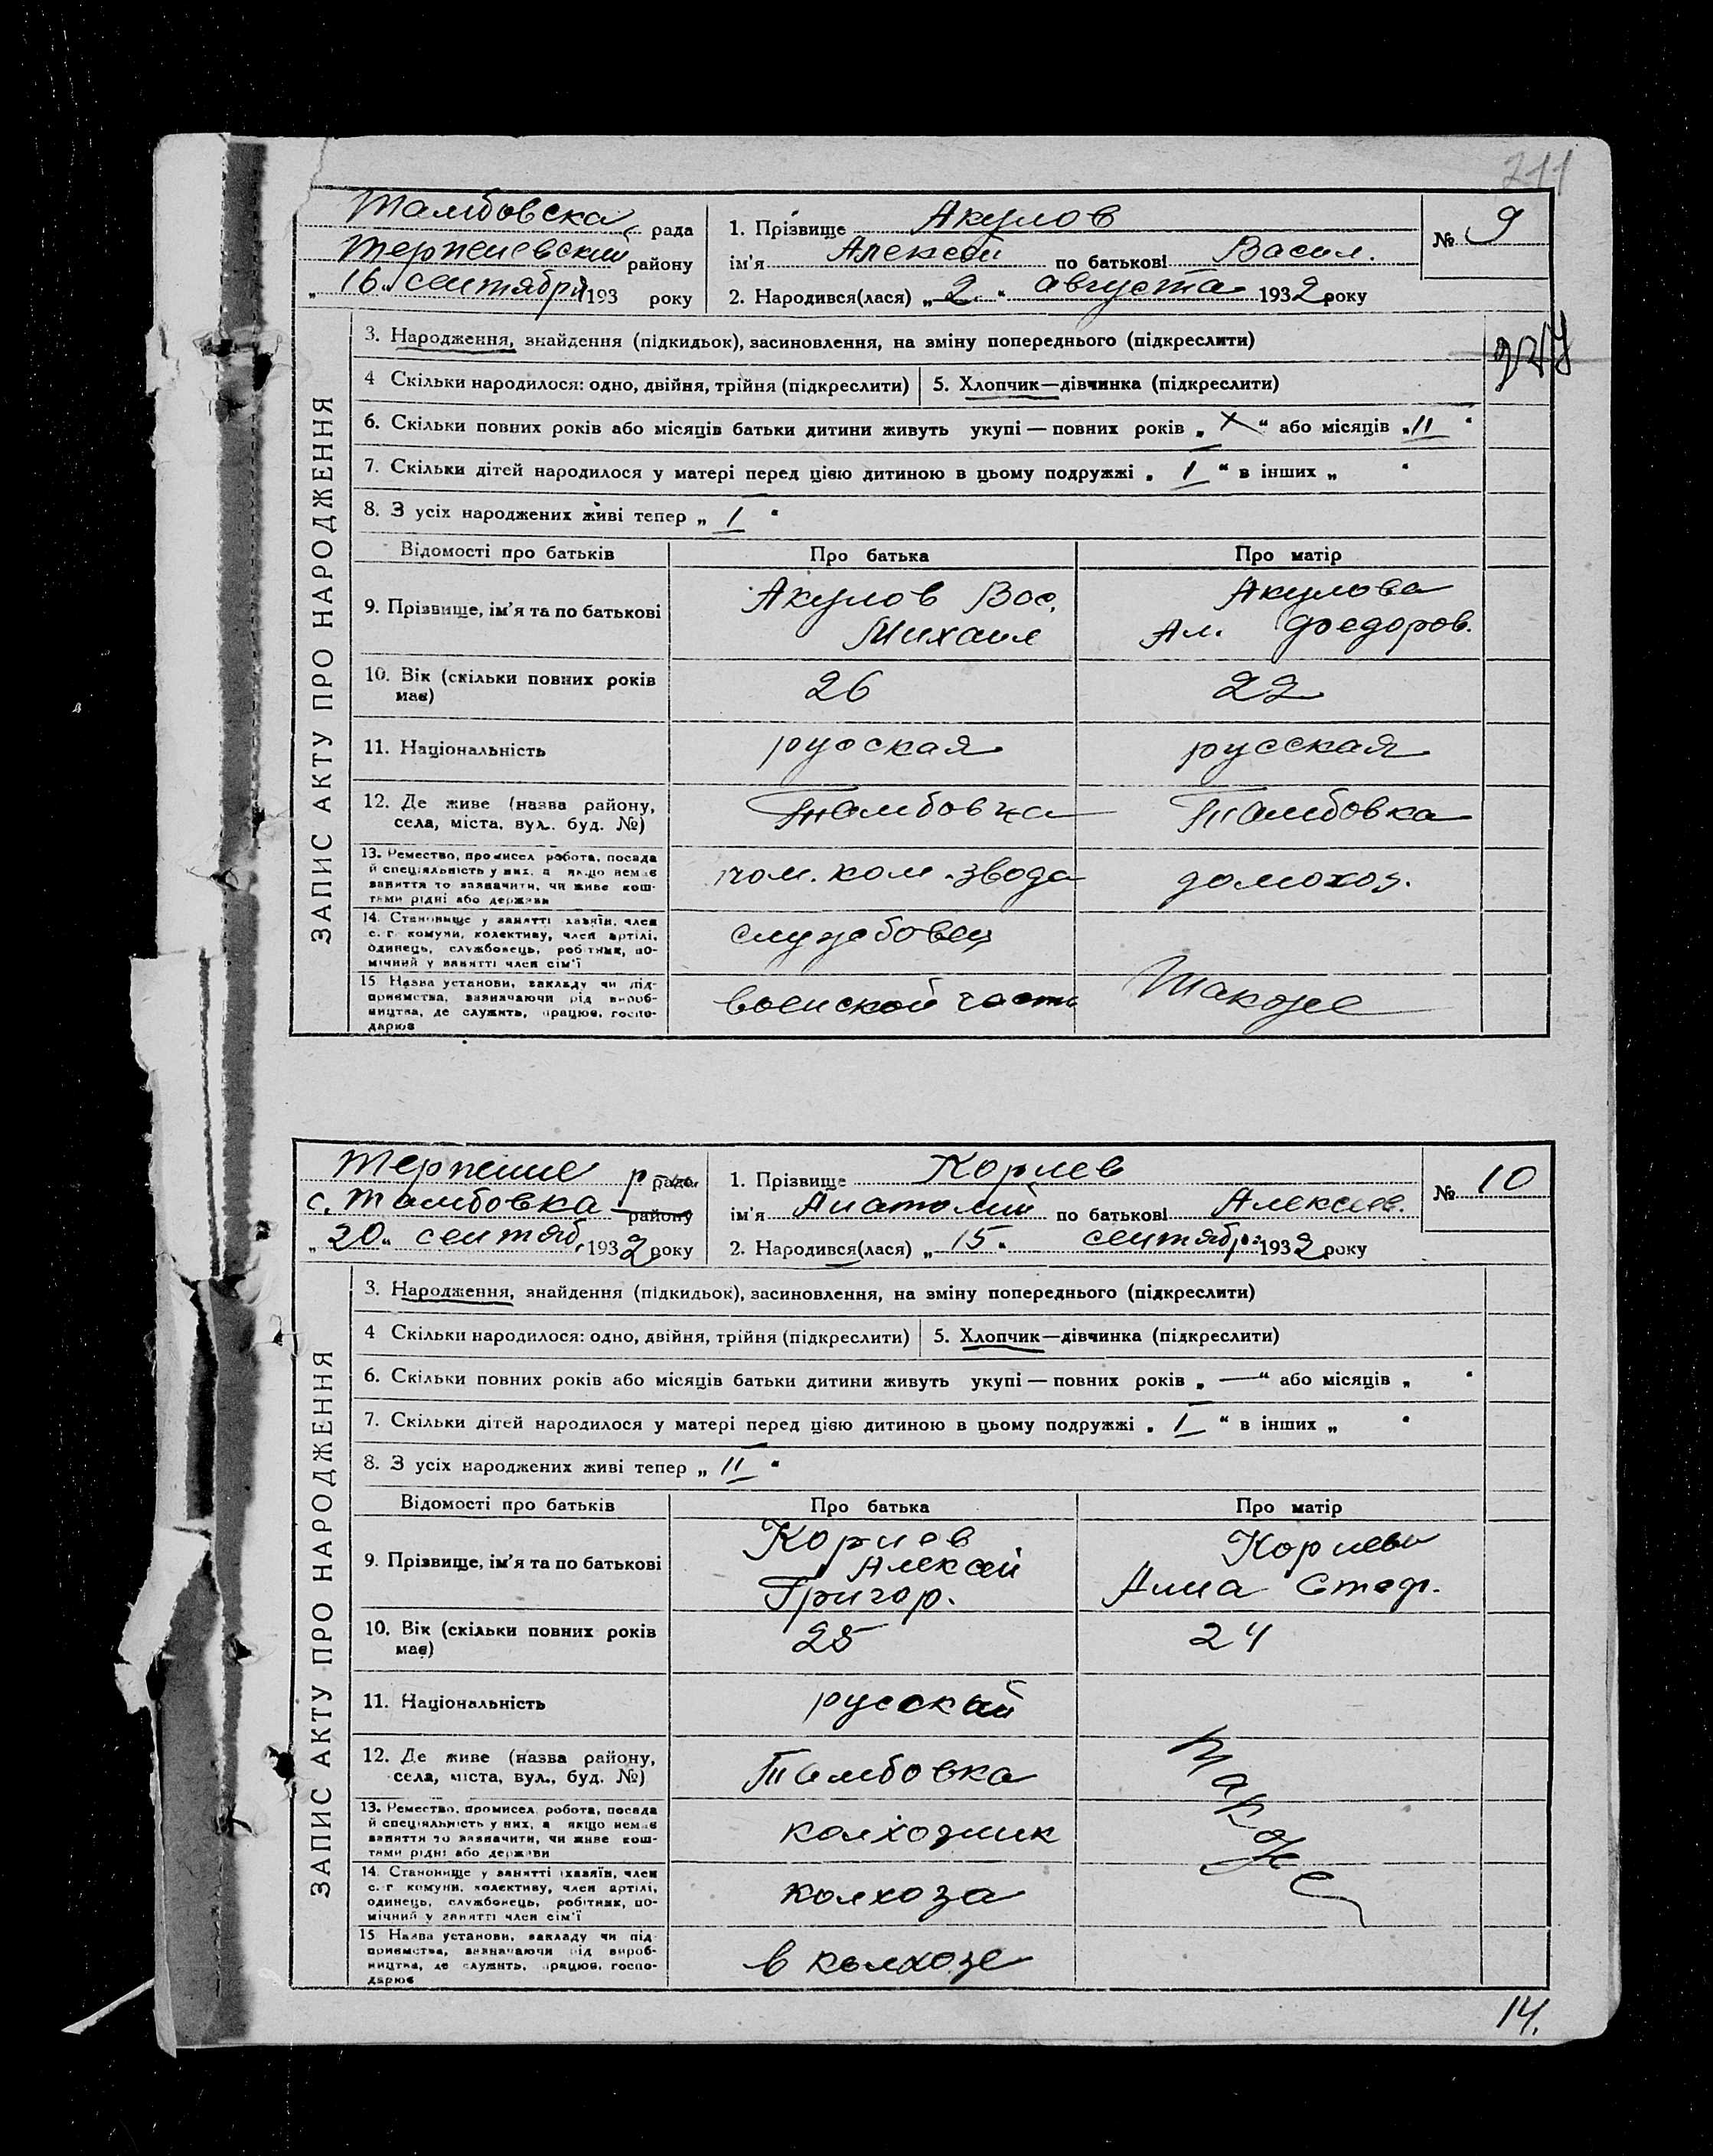 211
Тамбовска рада
Терпениевский району
„16" сентября 193 року
1. Прізвище Акулов
ім'я Алексей по батькові Васил.
2. Народився(лася) „2" августа 1932 року
№ 9
ЗАПИС АКТУ ПРО НАРОДЖЕННЯ
3. Народження, знайдення (підкидьок), засиновлення, на зміну попереднього (підкреслити)
4 Скільки народилося: одно, двійня, трійня (підкреслити) 5. Хлопчик—дівчинка (підкреслити)
6. Скільки повних років або місяців батьки дитини живуть укупі — повних років „ X " або місяців „ II "
7. Скільки дітей народилося у матері перед цією дитиною в цьому подружжі „ I " в інших „ "
8. З усіх народжених живі тепер „ I "
Відомості про батьків Про батька Про матір
9. Прізвище, ім'я та по батькові Акулов Вас. Михаил Акулова Ал. Федоров.
10. Вік (скільки повних років має) 26 22
11. Національність русская русская
12. Де живе (назва району, села, міста, вул. буд. №) Тамбовка Тамбовка
13. Ремество, промисел робота, посада й спеціяльність у них, а якщо немає заняття то зазначити, чи живе коштами рідні або держави пом. ком. звода домохоз.
14. Становище у занятті хазяїн, член с. г. комуни, колективу, член артілі, одинець, службовець, робітник, помічний у занятті член сім'ї службовец
15 Назва установи, закладу чи підприємства, зазначаючи рід виробництва, де служить, працює, господарює воинской части Также
Терпение р рада
с. Тамбовка району
„20" сентяб. 1932 року
1. Прізвище Корнев
ім'я Анатолий по батькові Алексеев.
2. Народився(лася) „15" сентябр. 1932 року
№ 10
ЗАПИС АКТУ ПРО НАРОДЖЕННЯ
3. Народження, знайдення (підкидьок), засиновлення, на зміну попереднього (підкреслити)
4 Скільки народилося: одно, двійня, трійня (підкреслити) 5. Хлопчик—дівчинка (підкреслити)
6. Скільки повних років або місяців батьки дитини живуть укупі — повних років „ — " або місяців „ "
7. Скільки дітей народилося у матері перед цією дитиною в цьому подружжі „ I " в інших „ "
8. З усіх народжених живі тепер „ II "
Відомості про батьків Про батька Про матір
9. Прізвище, ім'я та по батькові Корнев Алексей Григор. Корнева Анна Стеф.
10. Вік (скільки повних років має) 25 24
11. Національність русский
12. Де живе (назва району, села, міста, вул., буд. №) Тамбовка Также
13. Ремество, промисел, робота, посада й спеціяльність у них, а якщо немає заняття то зазначити, чи живе коштами рідні або держави колхозник
14. Становище у занятті хазяїн, член с. г. комуни, колективу, член артілі, одинець, службовець, робітник, помічний у занятті член сім'ї колхоза
15 Назва установи, закладу чи підприємства, зазначаючи рід виробництва, де служить, працює, господарює в колхозе
14.